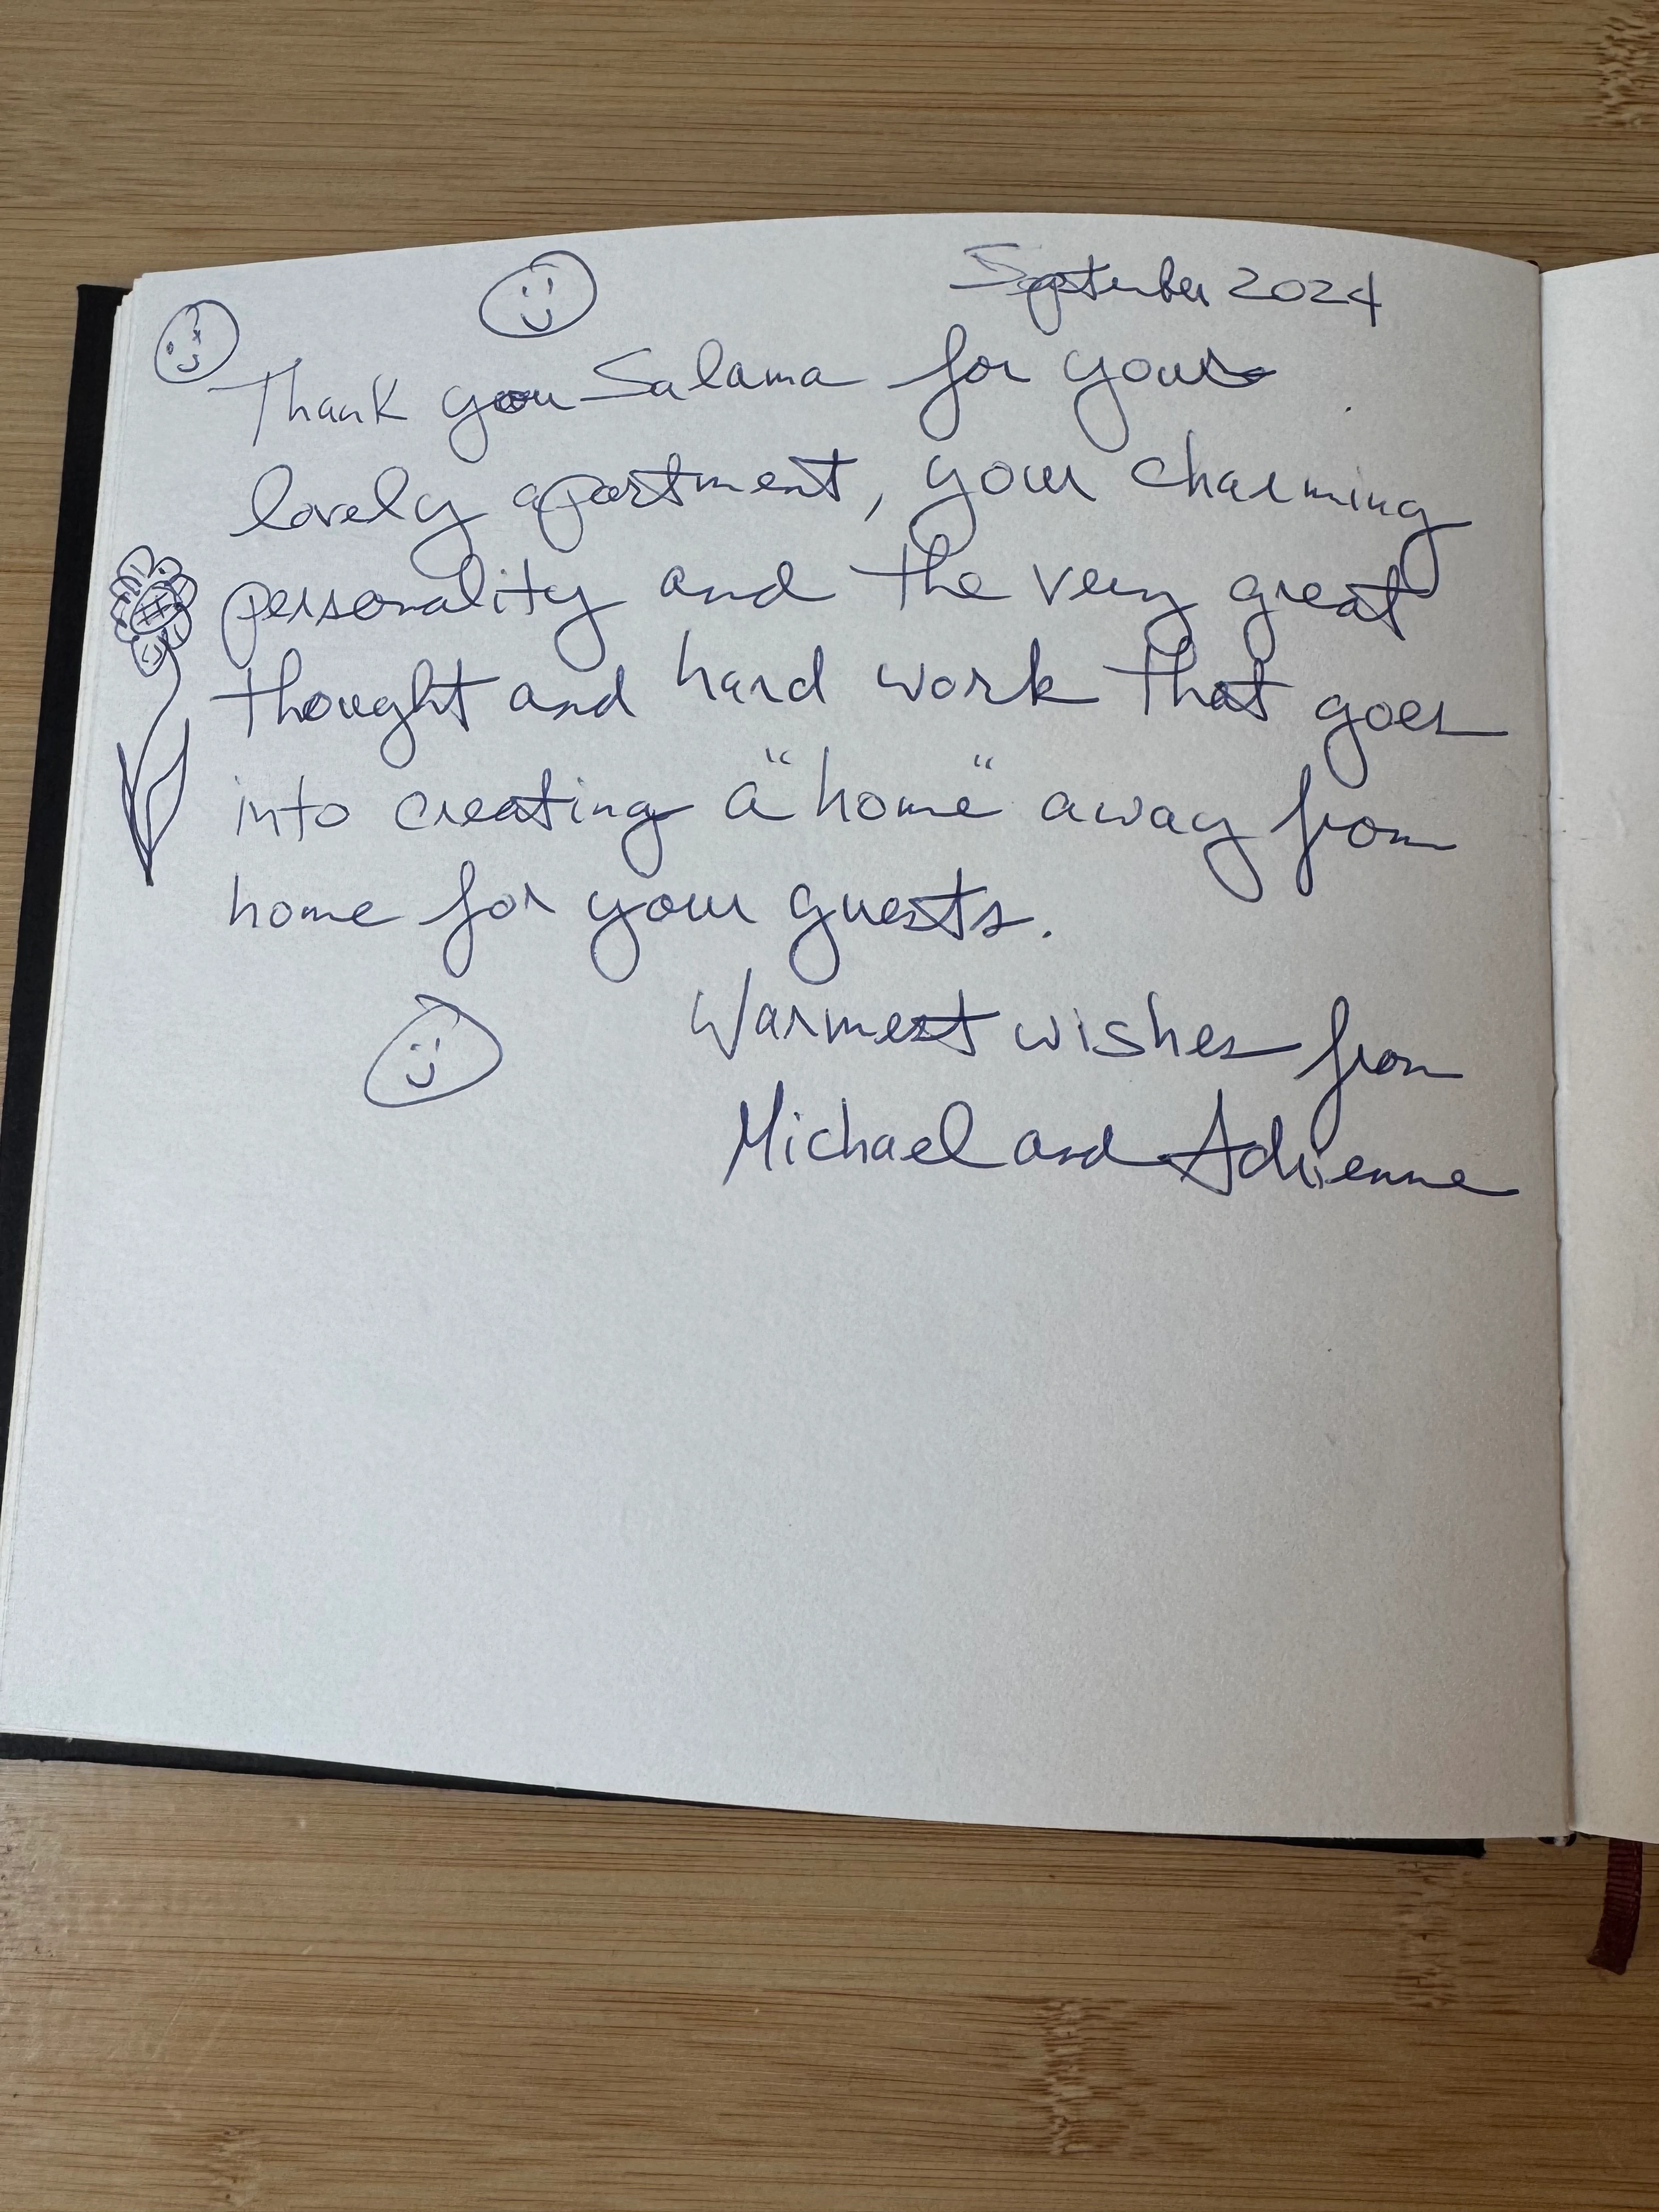 September 2024
Thank you Salama for your
lovely apartment, your charming
personality and the very great
thought and hard work that goes
into creating a "home" away from
home for your guests.
Warmest wishes from
Michael and Adrienne